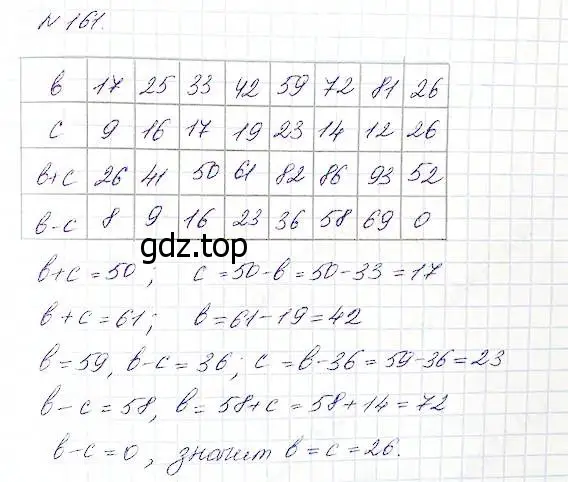 № 161.
в 17 25 33 42 59 72 81 26
с 9 16 17 19 23 14 12 26
в+с 26 41 50 61 82 86 93 52
в-с 8 9 16 23 36 58 69 0
gdz.top
в+с = 50 ; с = 50-в = 50-33 = 17
в + с = 61; в = 61-19 = 42
в = 59, в-с = 36; с = в-36 = 59-36 = 23
в-с = 58, в = 58+с = 58+14 = 72
в-с = 0 , значит в = с = 26.